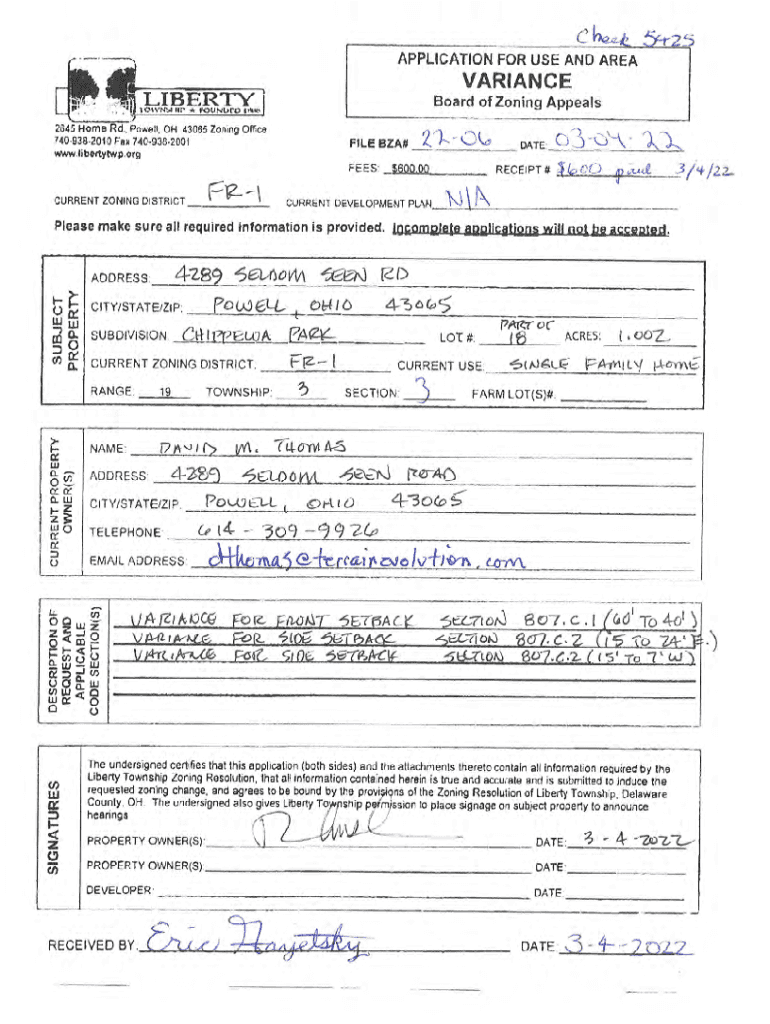 Check 5425
APPLICATION FOR USE AND AREA
VARIANCE
Board of Zoning Appeals
LIBERTY
TOWNSHIP
2845 Home Rd., Powell, OH 43065 Zoning Office
740-938-2010 Fax 740-938-2001
www.libertytwp.org
FILE BZA# 22-06 DATE: 03-04-22
FEES: $600.00 RECEIPT # $600 paid 3/4/22
CURRENT ZONING DISTRICT FR-1 CURRENT DEVELOPMENT PLAN N/A
Please make sure all required information is provided. Incomplete applications will not be accepted.
SUBJECT PROPERTY
ADDRESS: 4289 SELDOM SEEN RD
CITY/STATE/ZIP: POWELL, OHIO 43065
SUBDIVISION CHIPPEWA PARK LOT #: PART OF 18 ACRES: 1.002
CURRENT ZONING DISTRICT: FR-1 CURRENT USE: SINGLE FAMILY HOME
RANGE: 19 TOWNSHIP: 3 SECTION: 3 FARM LOT(S)#:
CURRENT PROPERTY OWNER(S)
NAME: DAVID M. THOMAS
ADDRESS: 4289 SELDOM SEEN ROAD
CITY/STATE/ZIP: POWELL, OHIO 43065
TELEPHONE: 614-309-9926
EMAIL ADDRESS: dthomas@terrainevolution.com
DESCRIPTION OF REQUEST AND APPLICABLE CODE SECTION(S)
VARIANCE FOR FRONT SETBACK SECTION 807.C.1 (60' TO 40')
VARIANCE FOR SIDE SETBACK SECTION 807.C.2 (15 TO 24' E.)
VARIANCE FOR SIDE SETBACK SECTION 807.C.2 (15' TO 7' W)
SIGNATURES
The undersigned certifies that this application (both sides) and the attachments thereto contain all information required by the
Liberty Township Zoning Resolution, that all information contained herein is true and accurate and is submitted to induce the
requested zoning change, and agrees to be bound by the provisions of the Zoning Resolution of Liberty Township, Delaware
County, OH. The undersigned also gives Liberty Township permission to place signage on subject property to announce
hearings
PROPERTY OWNER(S): DATE: 3-4-2022
PROPERTY OWNER(S) DATE:
DEVELOPER: DATE
RECEIVED BY: Eric Gayetsky DATE: 3-4-2022